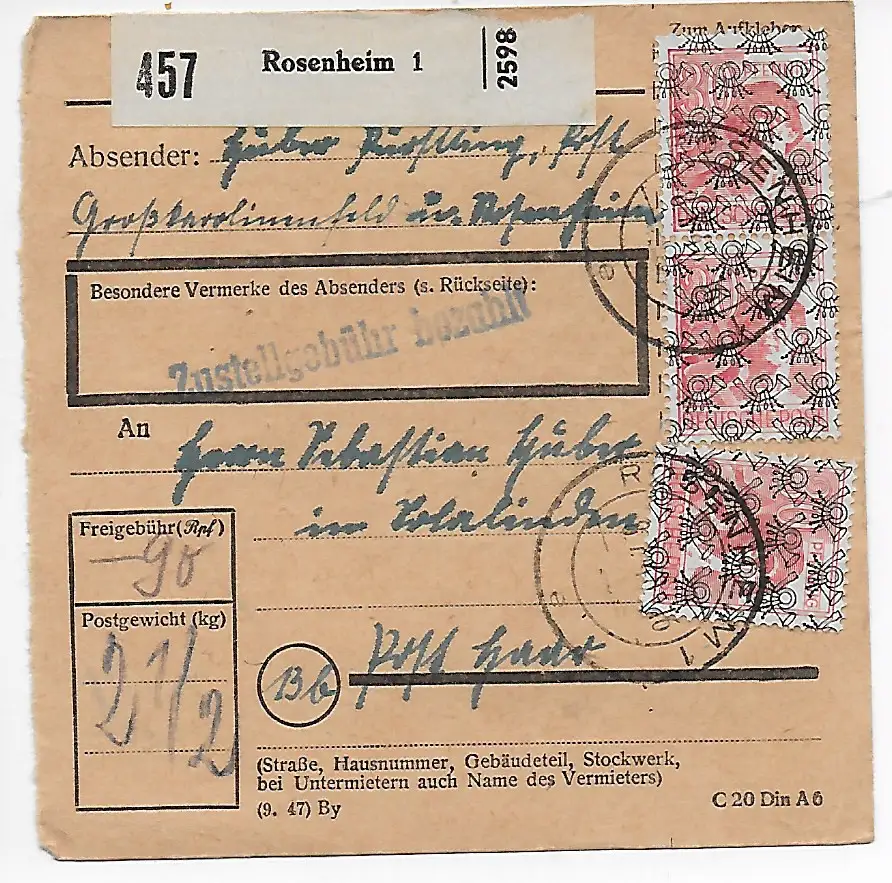 457 Rosenheim 1 2598
Zum Aufkleben
Absender: Huber Fürstling, Post
Großkarolinenfeld ü. Rosenheim
Besondere Vermerke des Absenders (s. Rückseite):
Zustellgebühr bezahlt
An
Herrn Sebastian Huber
in Solalinden
Freigebühr (Rpf)
—90
Postgewicht (kg)
2 1/2
Post Haar
13b
(Straße, Hausnummer, Gebäudeteil, Stockwerk,
bei Untermietern auch Name des Vermieters)
(9. 47) By
C 20 Din A 6